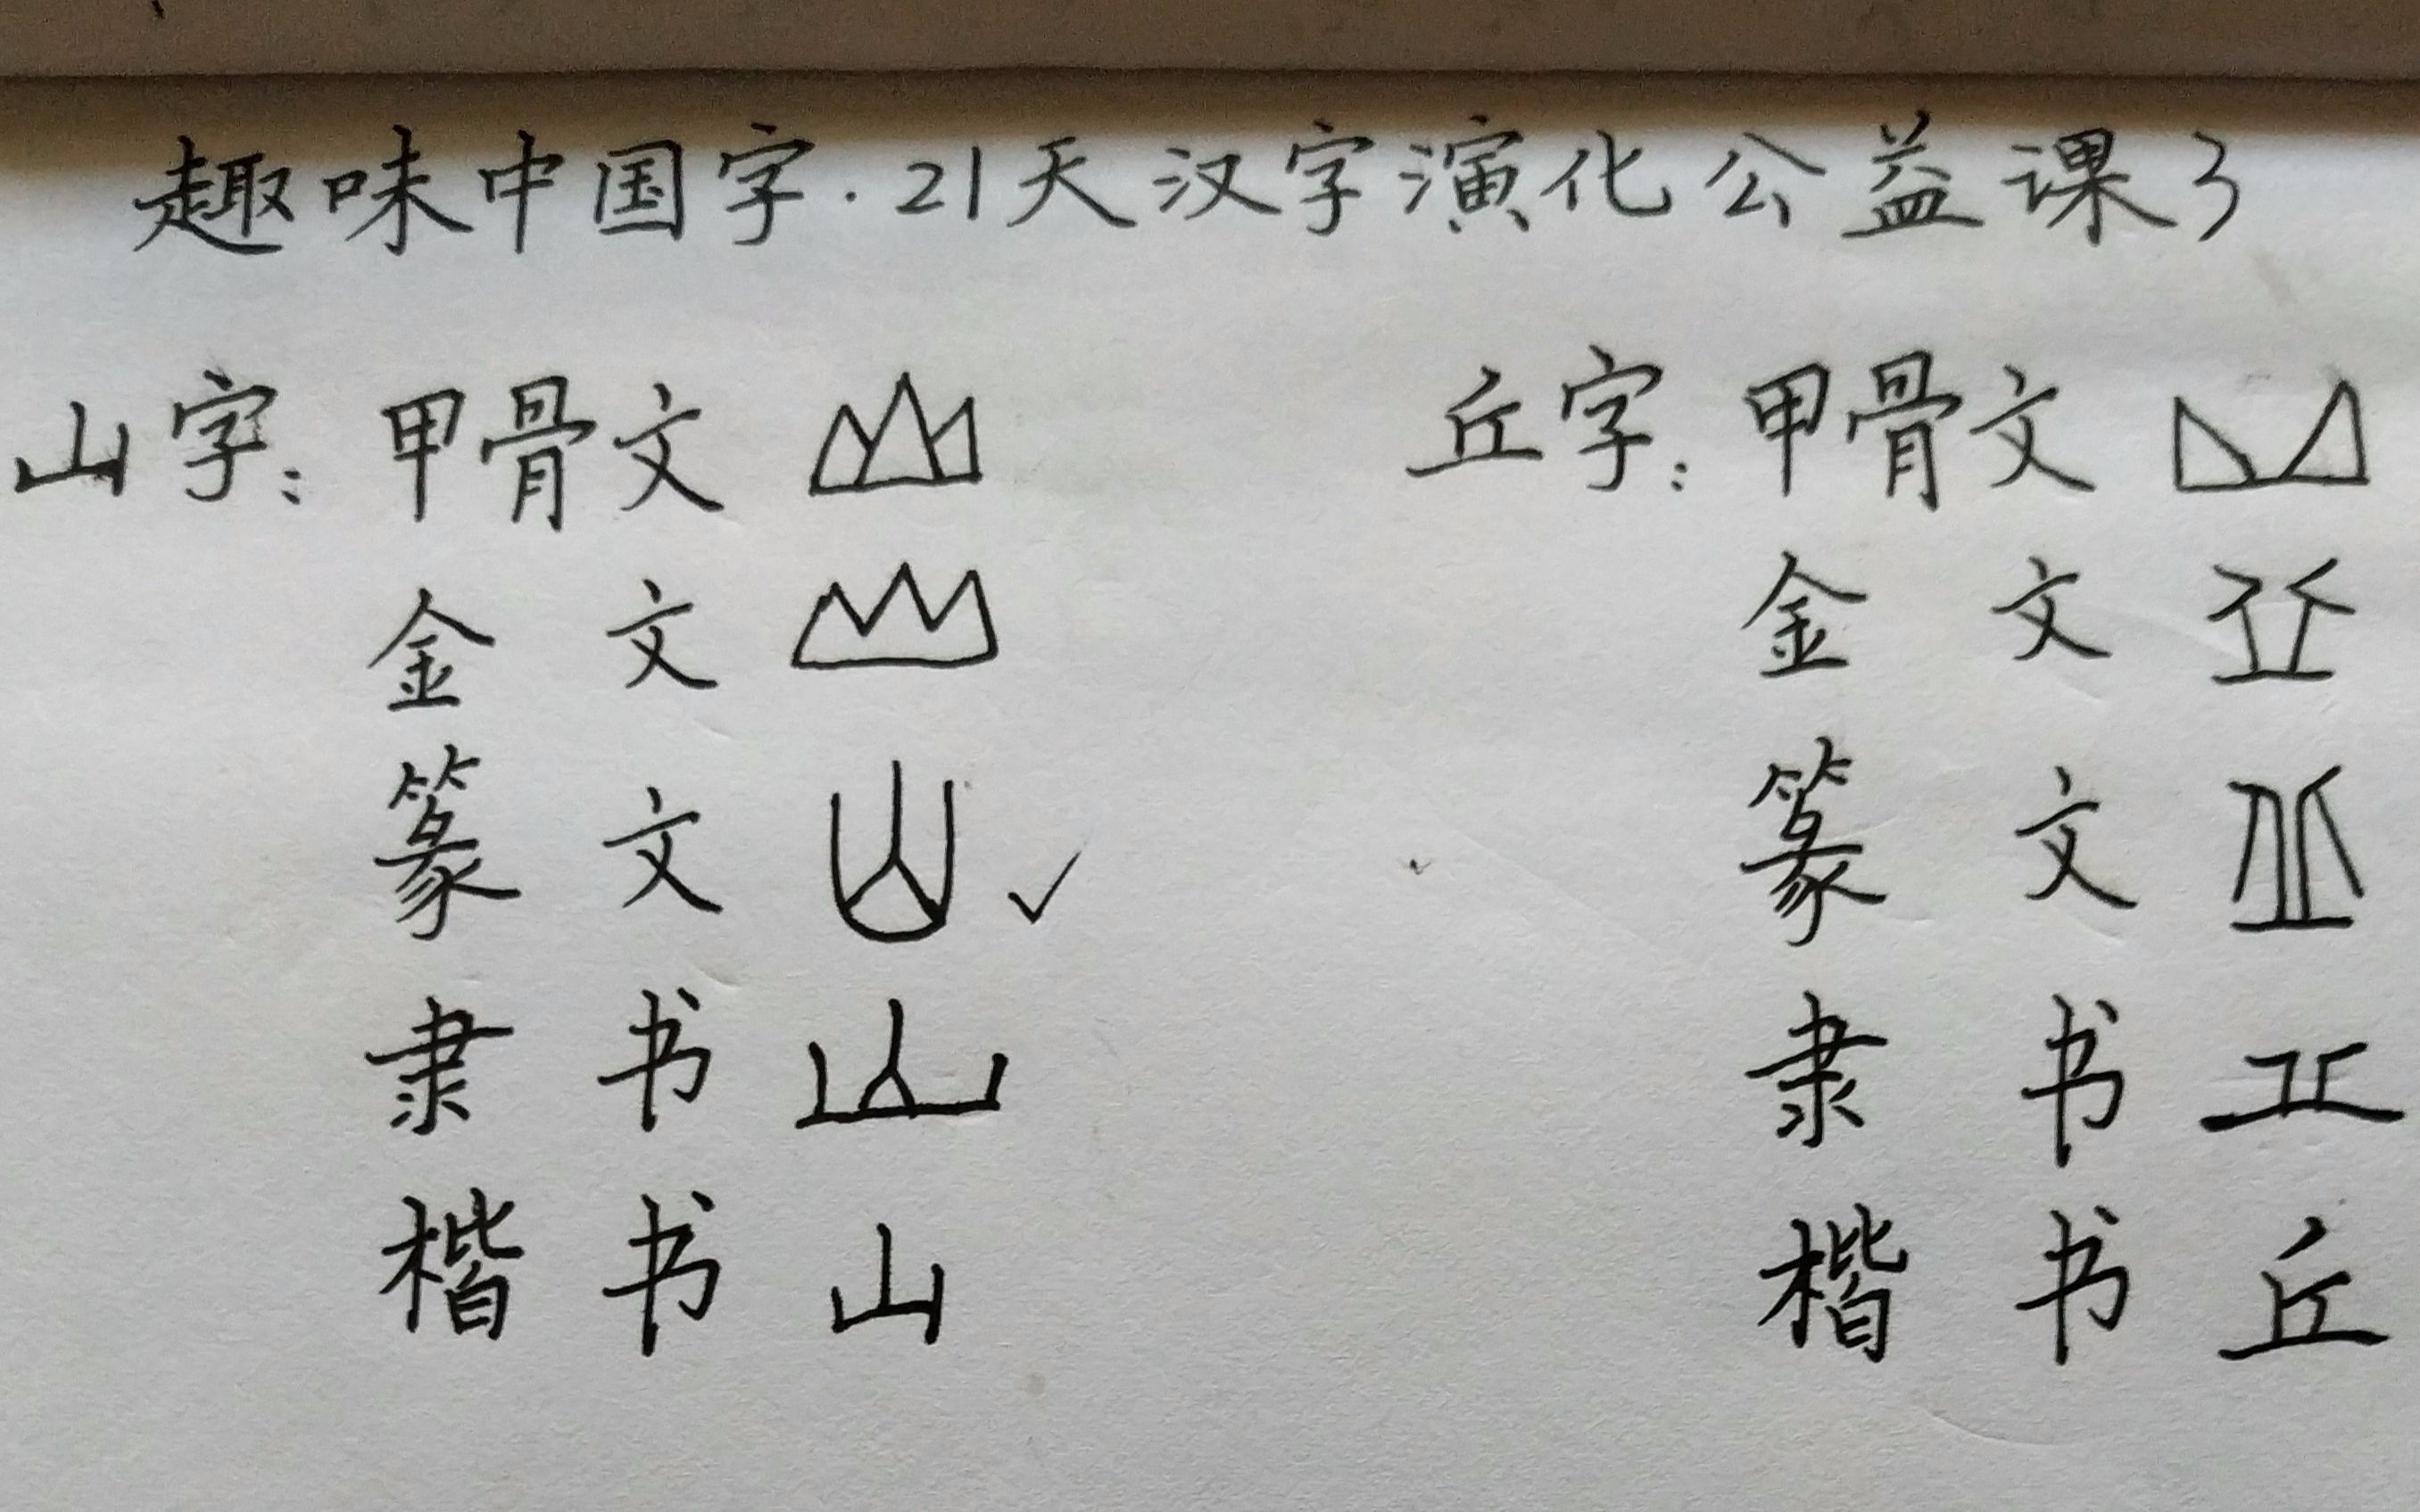 趣味中国字·21天汉字演化公益课3
山字：甲骨文 丘字：甲骨文
金文 金文
篆文 篆文
隶书 隶书
楷书 山 楷书 丘